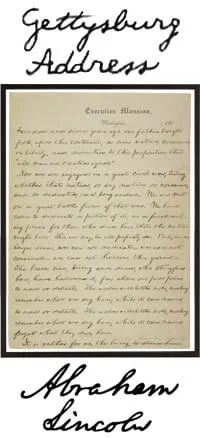 Gettysburg
Address
Executive Mansion,
Washington, 186
Four score and seven years ago our fathers brought
forth, upon this continent, a new nation, conceived
in liberty, and dedicated to the proposition that
"all men are created equal"
Now we are engaged in a great civil war, testing
whether that nation, or any nation so conceived,
and so dedicated, can long endure. We are met
on a great battle field of that war. We have
come to dedicate a portion of it, as a final rest
ing place for those who died here, that the nation
might live. This we may, in all propriety do. But, in a
larger sense, we can not dedicate we can not
consecrate we can not hallow, this ground
The brave men, living and dead, who struggled
here, have hallowed it, far above our poor power
to add or detract. The world will little note, nor long
remember what we say here; while it can never
to add or detract. The world will little note, nor long
remember what we say here; while it can never
forget what they did here.
It is rather for us, the living, to stand here
Abraham
Lincoln